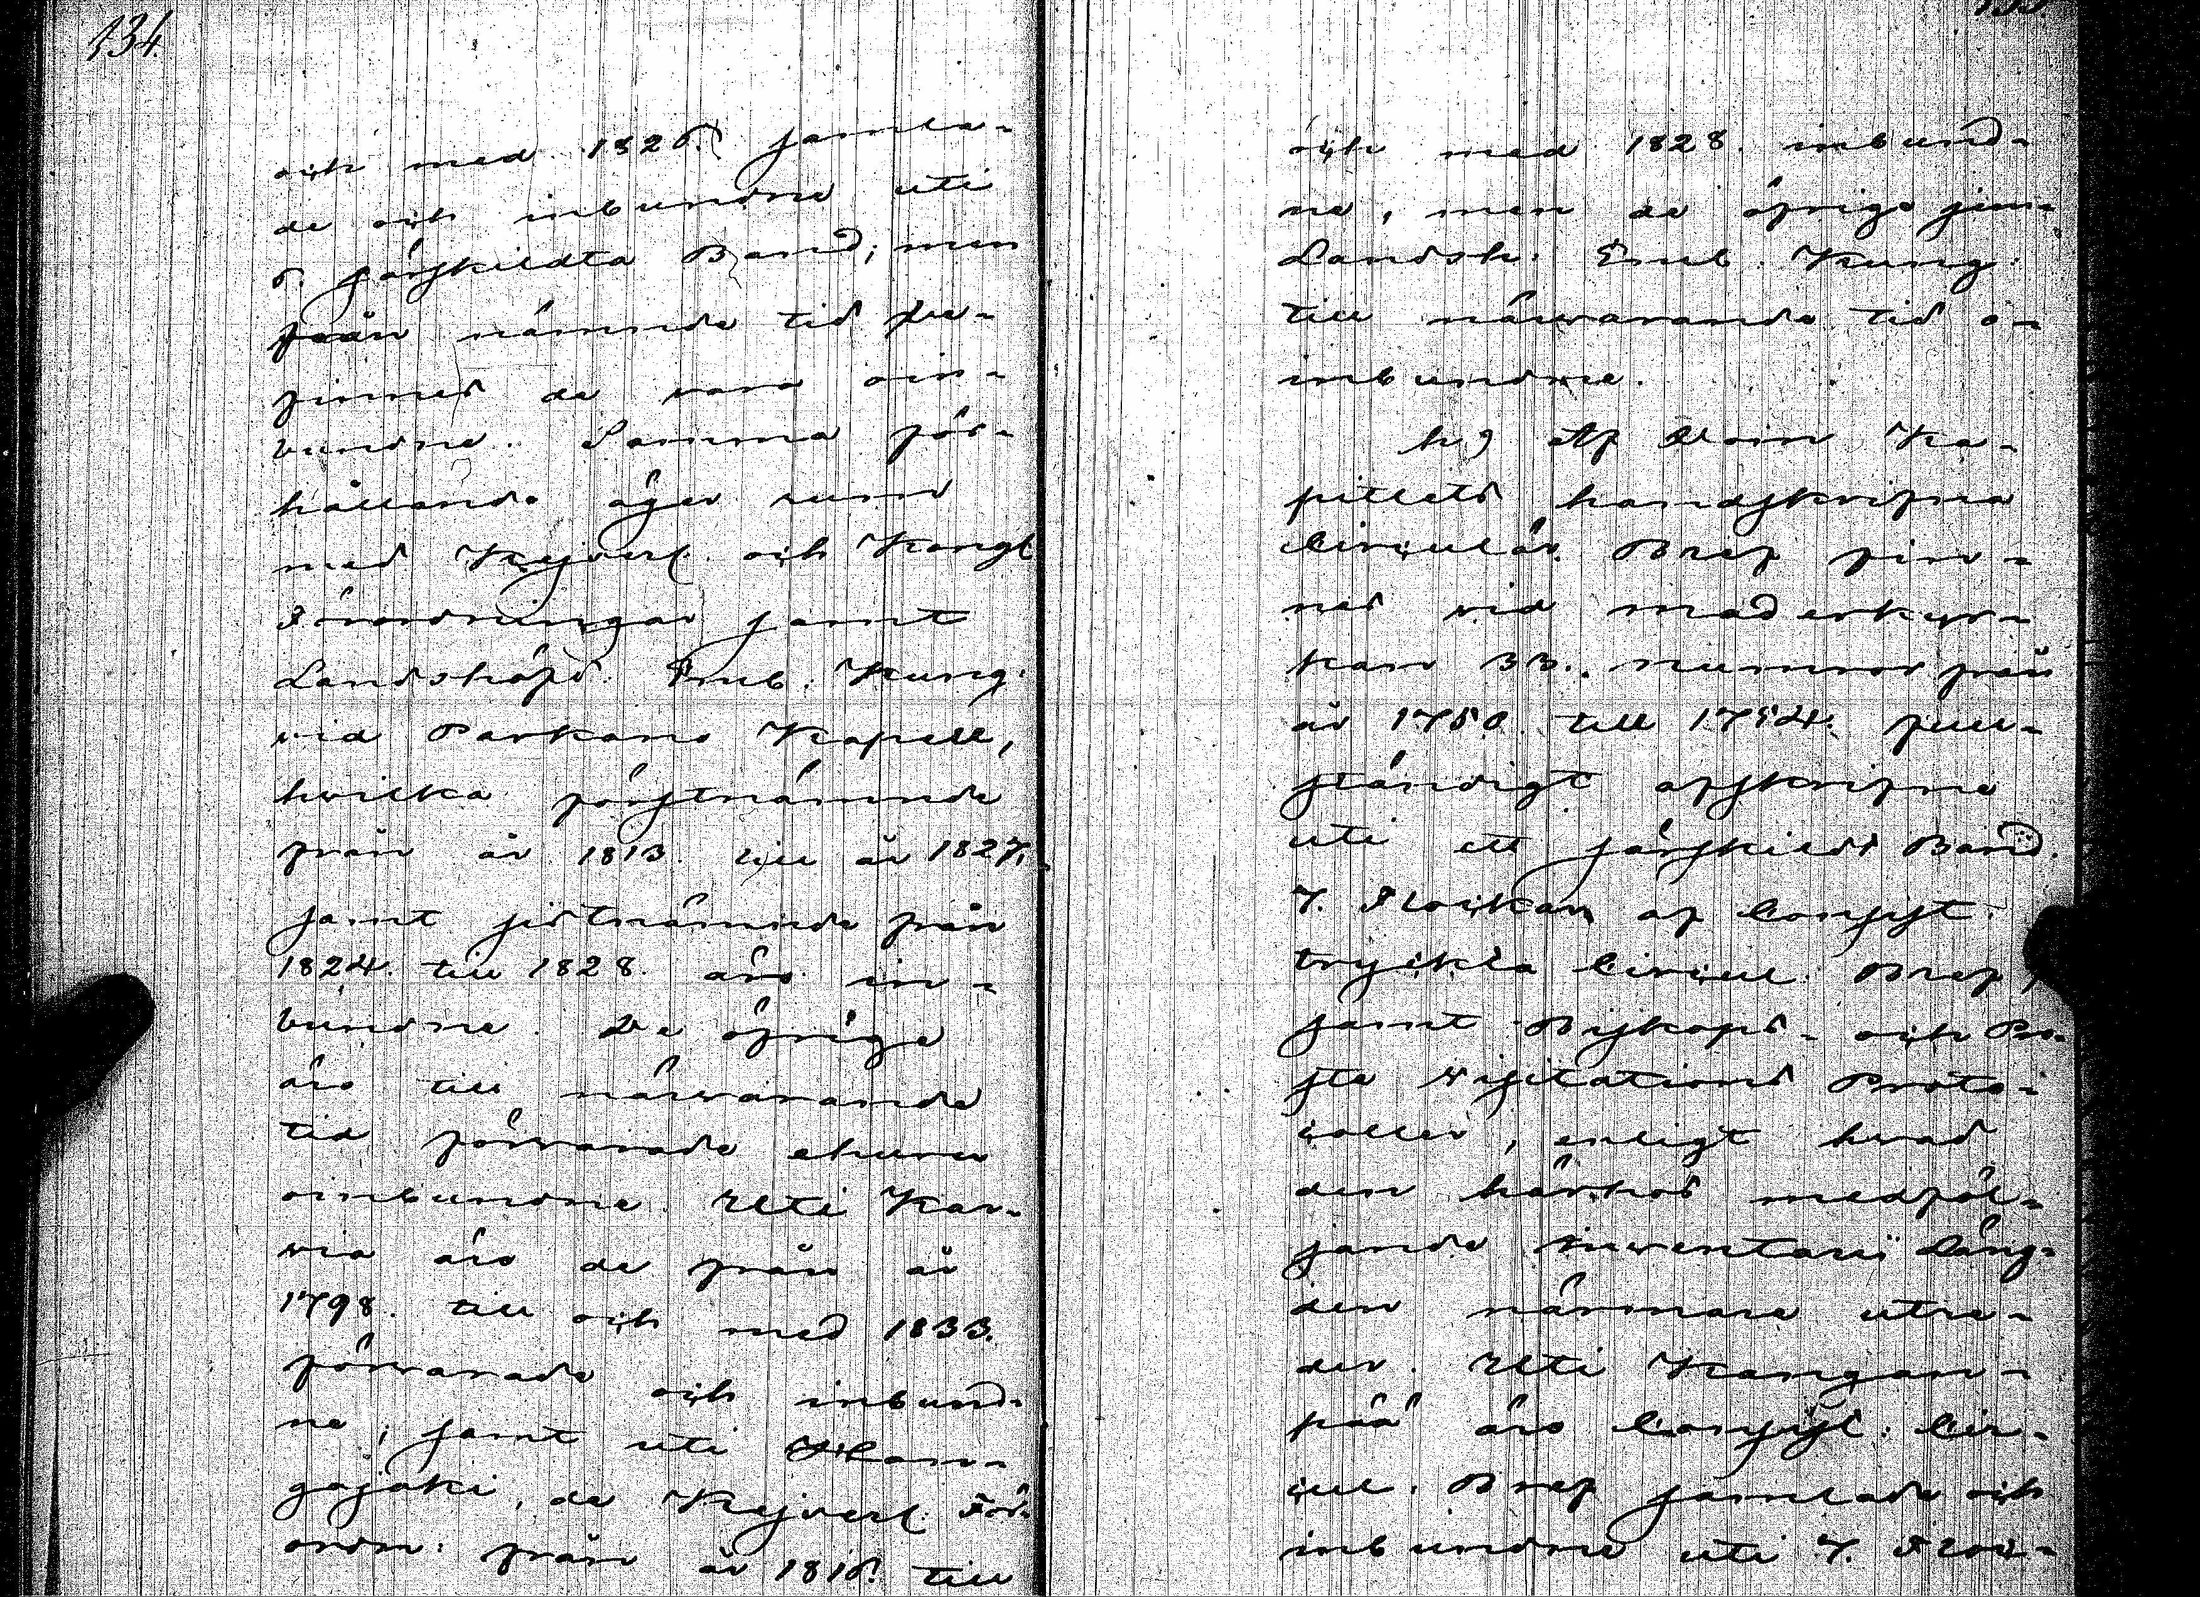 134
och med 1826. samla-
de och inbundne uti
6. särskildta Band; men
från nämnde tid be-
finnes de vara oin-
bundne. Samma för-
hållande äger rum
med Kejserl. och Kongl.
Förordningar samt
Landshöfd. Emb. Kung.
vid Parkano Kapell,
hwilka förstnämnde
från år 1813. till år 1827,
samt sistnämnde från
1824. till 1828. äro in-
bundne. De öfrige
äro till närwarande
tid förwarade ehuru
oinbundne. Uti Kar-
via äro de från år
1798. till och med 1833.
förwarade och inbund-
ne, samt uti Hon-
gojoki, de Kejserl. För-
ordn: från år 1816. till
och med 1828. inbund-
ne, men de öfrige jem-
Landsh: Emb. Kung:
till närwarande tid o-
inbundne.
h) Af Dom Ka-
pitlets handskrifna
Circulär Bref fin-
nes vid moderkyr-
kan 33. nummor från
år 1750. till 1754. full-
ständigt afskrifne
uti ett särskildt Band.
7. Flockar af Consist.
tryckta Circul: Bref,
samt Biskops- och Pro-
ste Visitations Proto-
coller, enligt hvad
den härhos medföl-
jande Inventarii Läng-
den närmare utre-
der. Uti Kangan-
pää äro Consist: Cir-
cul. Bref samlade och
inbundne uti 7. Floc-